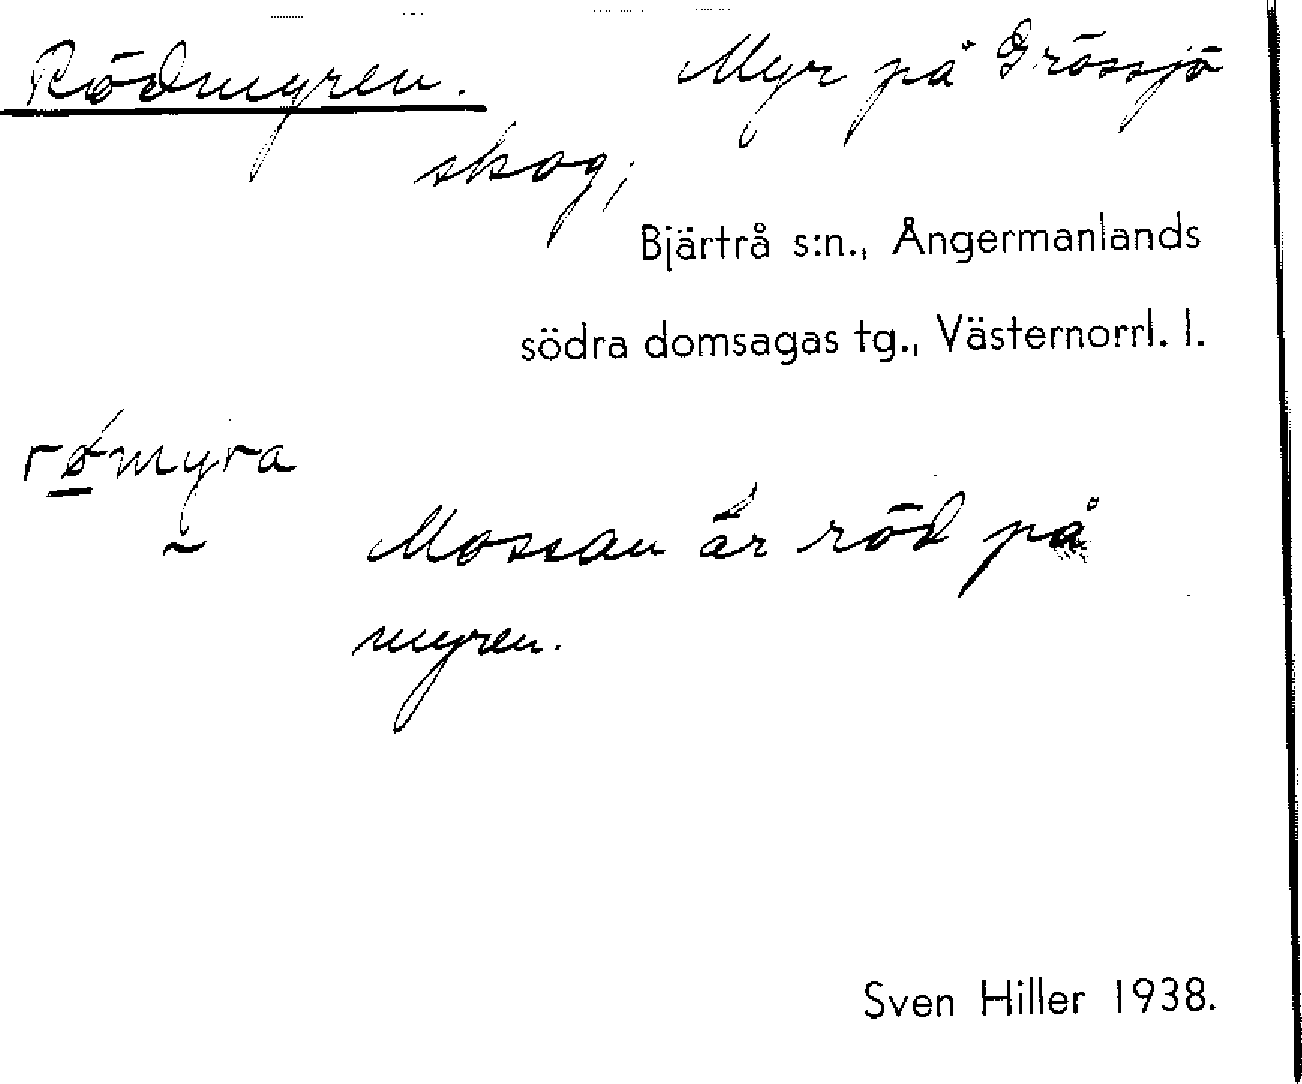 Rödmyren. Myr på Grössjö
skog,
Bjärtrå s:n., Ångermanlands
södra domsagas tg., Västernorrl. l.
rømyra
Mossan är röd på
myren.
Sven Hiller 1938.